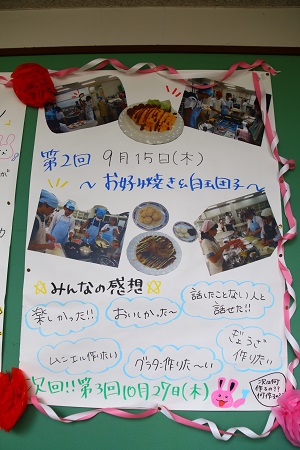 第2回 9月15日(木)
〜お好み焼き&白玉団子〜
☆みんなの感想☆
楽しかった!!
おいしかった〜
話したことない人と
話せた!!
ムニエル作りたい
グラタン作りた〜い
ぎょうざ
作りたい
次回!!第3回10月27日(木)
次は何
作るの??